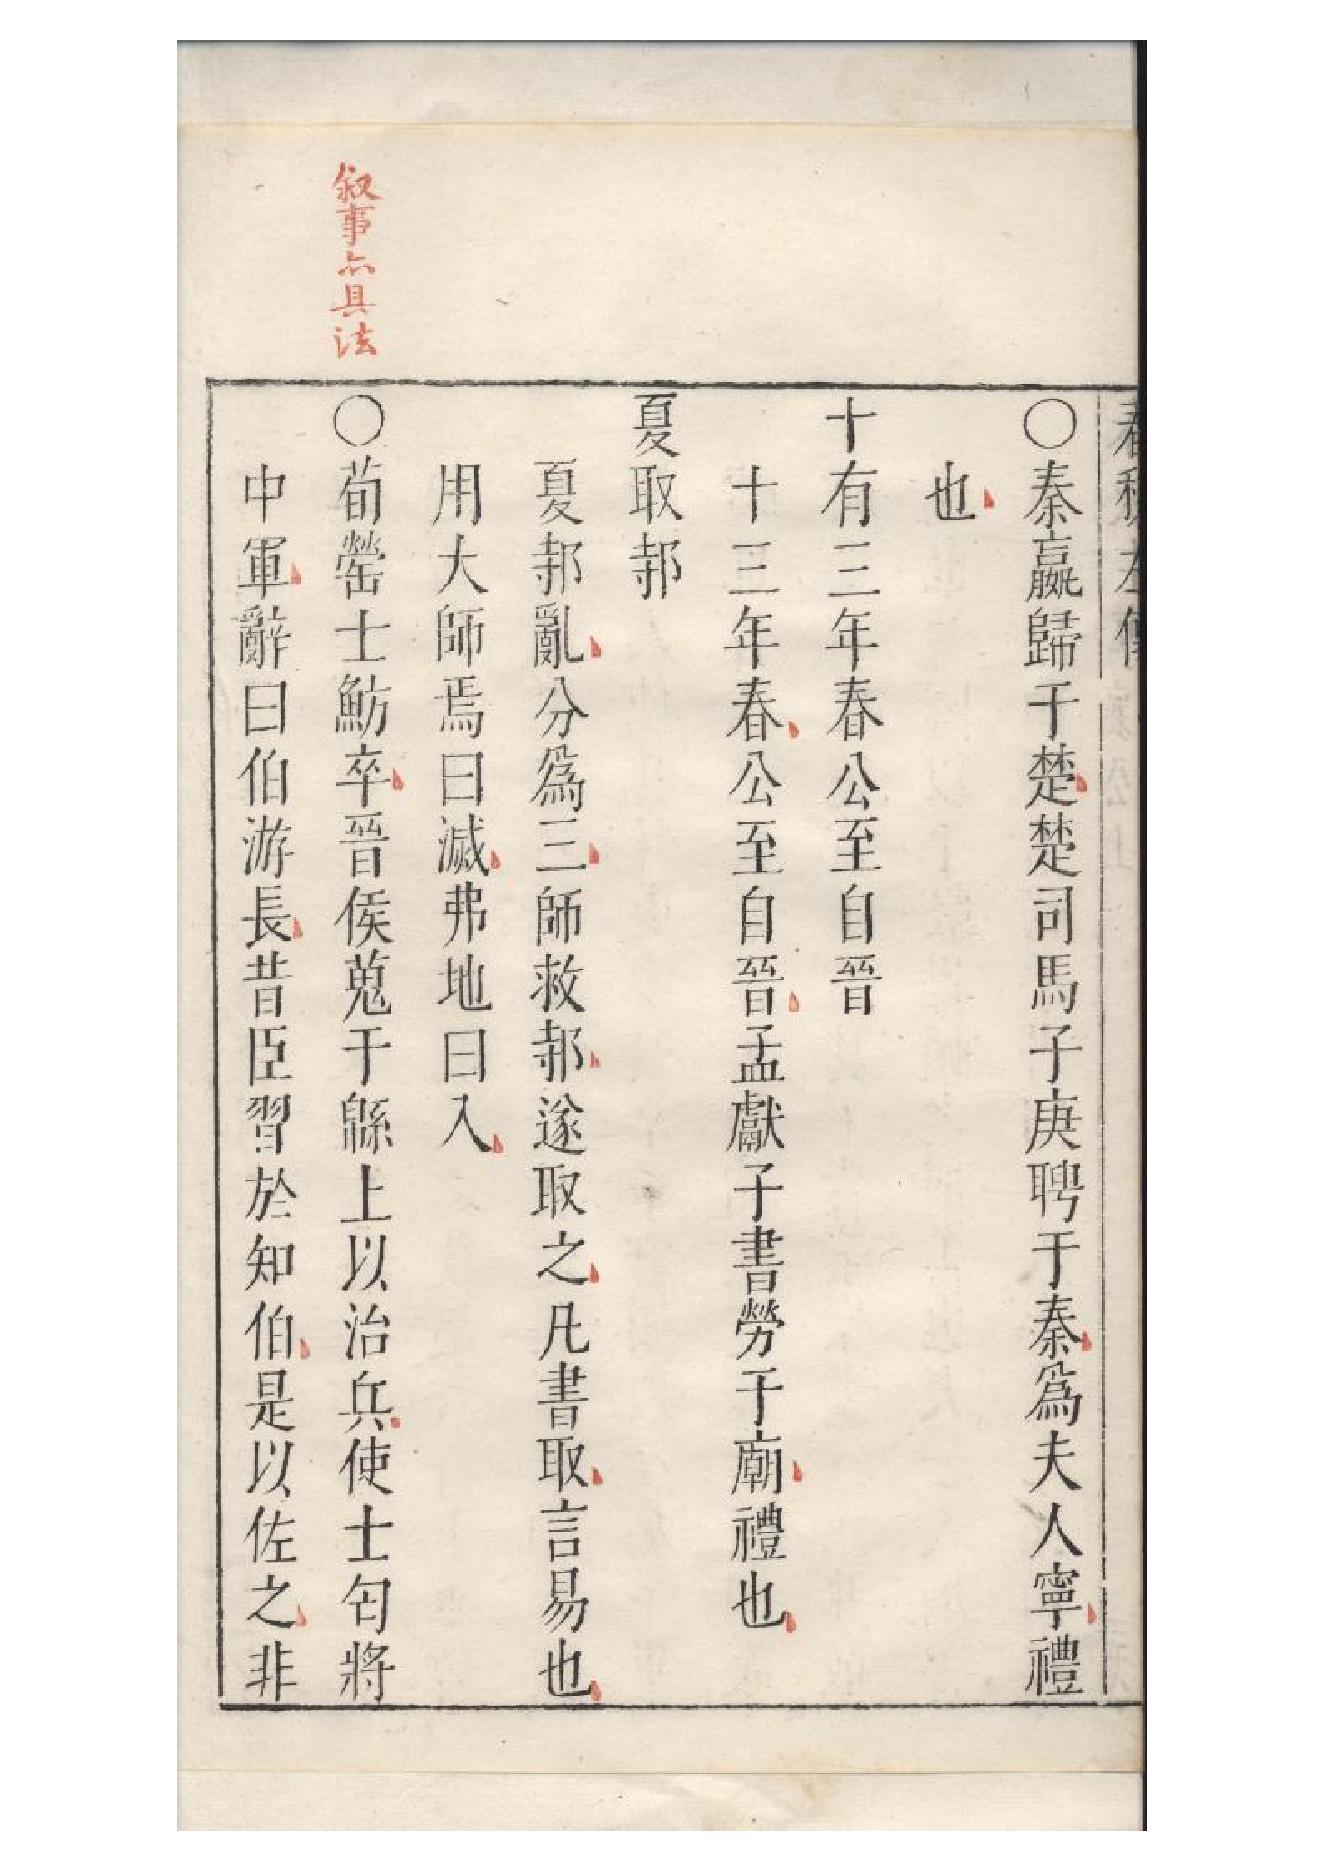 〇秦嬴歸于楚楚司馬子庚聘于秦爲夫人寧禮
也
十有三年春公至自晉
十三年春公至自晉孟獻子書勞于廟禮也
夏取邿
夏邿亂分爲三師救邿遂取之凡書取言易也
用大師焉曰滅弗地曰入
〇荀罃士魴卒晉侯蒐于緜上以治兵使士匄將
中軍辭曰伯游長昔臣習於知伯是以佐之非
叙事亦具法